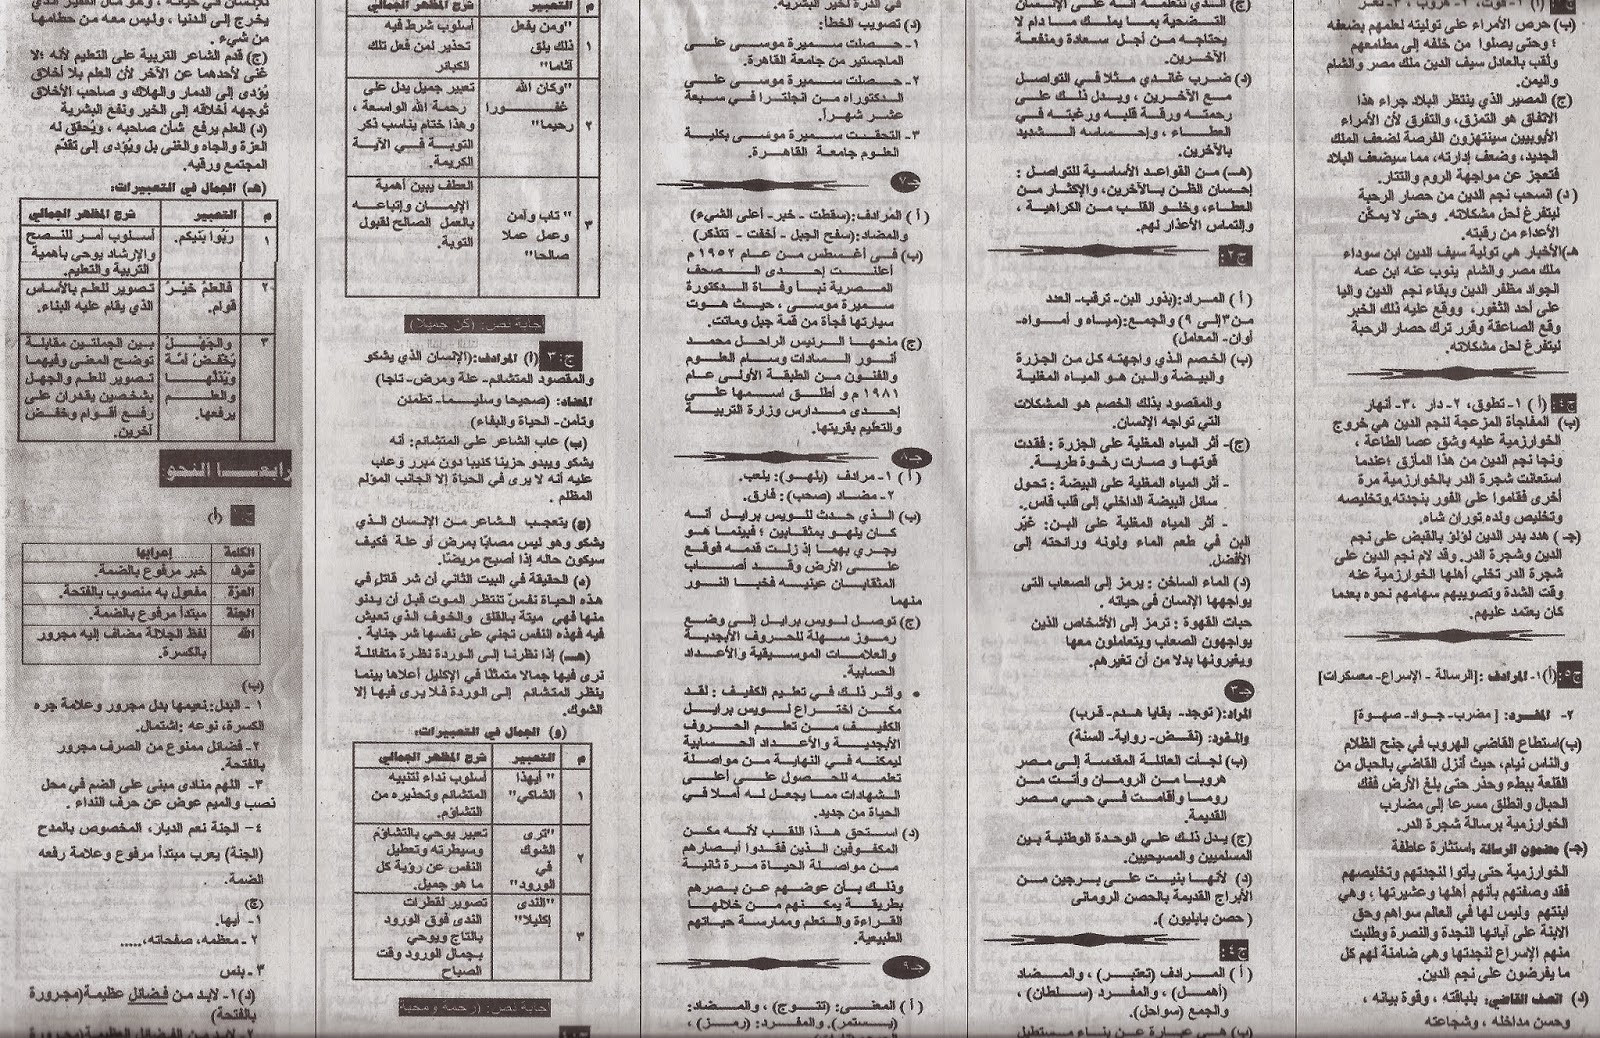 (ب) حرص الأمراء على توليته لعلمهم بضعفه
؛ وحتى يصلوا من خلفه إلى مطامعهم
ولقب بالعادل سيف الدين ملك مصر والشام
واليمن.
(ج) المصير الذي ينتظر البلاد جراء هذا
الاتفاق هو التمزق، والتفرق لأن الأمراء
الأيوبيين سينتهزون الفرصة لضعف الملك
الجديد، وضعف إدارته، مما سيضعف البلاد
فتعجز عن مواجهة الروم والتتار.
(د) انسحب نجم الدين من حصار الرحبة
ليتفرغ لحل مشكلاته. وحتى لا يمكّن
الأعداء من رقبته.
هـ) الأخبار هي تولية سيف الدين ابن سوداء
ملك مصر والشام ينوب عنه ابن عمه
الجواد مظفر الدين وبقاء نجم الدين واليا
على أحد الثغور، ووقع عليه ذلك الخبر
وقع الصاعقة وقرر ترك حصار الرحبة
ليتفرغ لحل مشكلاته.
ج٤: (أ) ١- تطوق، ٢- دار، ٣- أنهار
(ب) المفاجأة المزعجة لنجم الدين هي خروج
الخوارزمية عليه وشق عصا الطاعة ،
ونجا نجم الدين من هذا المأزق ؛عندما
استعانت شجرة الدر بالخوارزمية مرة
أخرى فقاموا على الفور بنجدته وتخليصه
وتخليص ولده توران شاه.
(جـ ) هدد بدر الدين لؤلؤ بالقبض على نجم
الدين وشجرة الدر. وقد لام نجم الدين على
شجرة الدر تخلي أهلها الخوارزمية عنه
وقت الشدة وتصويبهم سهامهم نحوه بعدما
كان يعتمد عليهم.
ج٥: (أ) ١- المرادف: [الرسالة - الإسراع- معسكرات]
٢- المفرد: [ مضرب- جواد- صهوة]
(ب) استطاع القاضي الهروب في جنح الظلام
والناس نيام، حيث أنزل القاضي بالحبال من
القلعة ببطء وحذر حتى بلغ الأرض ففك
الحبال وانطلق مسرعا إلى مضارب
الخوارزمية برسالة شجرة الدر.
(جـ) مضمون الرسالة: استثارة عاطفة
الخوارزمية حتى يأتوا لنجدتهم وتخليصهم
فقد وصفتهم بأنهم أهلها وعشيرتها ، وهي
ابنتهم وليس لها في العالم سواهم وحق
الابنة على آبائها النجدة والنصرة وطلبت
منهم الإسراع لنجدتها وهي ضامنة لهم كل
ما يفرضون على نجم الدين.
(د) اتصف القاضي: بلباقته ، وقوة بيانه ،
وحسن مداخله ، وشجاعته
التضحية بما يملك ما دام لا
يحتاجه من أجل سعادة ومنفعة
الآخرين.
(د) ضرب غاندي مثلا في التواصل
مع الآخرين ، ويدل ذلك على
رحمته ورقة قلبه ورغبته في
العطاء ، وإحساسه الشديد
بالآخرين.
(هـ) من القواعد الأساسية للتواصل :
إحسان الظن بالآخرين، والإكثار من
العطاء، وخلو القلب من الكراهية ،
والتماس الأعذار لهم.
ج٢:
(أ ) المراد:(بذور البن- ترقب- العدد
من٣إلى ٩) والجمع:(مياه و أمواه-
أوان- المعامل)
(ب) الخصم الذي واجهته كل من الجزرة
والبيضة والبن هو المياه المغلية
والمقصود بذلك الخصم هو المشكلات
التي تواجه الإنسان.
(ج)- أثر المياه المغلية على الجزرة : فقدت
قوتها و صارت رخوة طرية.
- أثر المياه المغلية على البيضة : تحول
سائل البيضة الداخلي إلى قلب قاس.
- أثر المياه المغلية على البن: غيّر
البن في طعم الماء ولونه ورائحته إلى
الأفضل.
(د) الماء الساخن : يرمز إلى الصعاب التى
يواجهها الإنسان فى حياته.
حبات القهوة : ترمز إلى الأشخاص الذين
يواجهون الصعاب ويتعاملون معها
ويغيرونها بدلا من أن تغيرهم.
جـ٣
المراد: ( توجد- بقايا هدم- قرب)
والمفرد: (نقض- رواية- السنة)
(ب) لجأت العائلة المقدسة إلى مصر
هروبا من الرومان وأتت من
روما وأقامت في حي مصر
القديمة.
(ج) يدل ذلك علي الوحدة الوطنية بين
المسلميين والمسيحيين.
(د) لأنها بنيت على برجين من
الأبراج القديمة بالحصن الرومانى
( حصن بابليون ).
ج٤:
( أ ) المرادف (تعتبر) ، والمضاد
(أهمل) ، والمفرد (سلطان) ،
والجمع (سواحل).
(ب) هي عبارة عن بناء مستطيل
في الذرة لخير البشرية.
(د) تصويب الخطأ:
١- حصلت سميرة موسى على
الماجستير من جامعة القاهرة.
٢- حصلت سميرة موسى على
الدكتوراه من انجلترا في سبعة
عشر شهراً.
٣- التحقت سميرة موسى بكلية
العلوم جامعة القاهرة.
جـ٧
( أ ) المرادف:(سقطت - خبر- أعلى الشيء)
والمضاد:(سفح الجبل - أخفت - تتذكر)
(ب) فى أغسطس من عام ١٩٥٢ م
أعلنت إحدى الصحف
المصرية نبأ وفاة الدكتورة
سميرة موسى ، حيث هوت
سيارتها فجأة من قمة جبل وماتت.
(ج) منحها الرئيس الراحل محمد
أنور السادات وسام العلوم
والفنون من الطبقة الأولى عام
١٩٨١م و أطلق اسمها على
إحدى مدارس وزارة التربية
والتعليم بقريتها.
جـ٨
( أ ) ١- مرادف (يلهو): يلعب.
٢- مضاد (صحب): فارق.
(ب) الذي حدث للويس برايل أنه
كان يلهو بمثقابين ؛ فبينما هو
يجري بهما إذ زلت قدمه فوقع
على الأرض وقد أصاب
المثقابان عينيه فخبا النور
منهما
(ج) توصل لويس برايل إلى وضع
رموز سهلة للحروف الأبجدية
والعلامات الموسيقية والأعداد
الحسابية.
• وأثر ذلك في تعليم الكفيف : لقد
مكن اختراع لويس برايل
الكفيف من تعلم الحروف
الأبجدية والأعداد الحسابية
ليمكنه في النهاية من مواصلة
تعلمه للحصول على أعلى
الشهادات مما يجعل له أملا في
الحياة من جديد.
(د) استحق هذا اللقب لأنه مكن
المكفوفين الذين فقدوا أبصارهم
من مواصلة الحياة مرة ثانية
وذلك بأن عوضهم عن بصرهم
بطريقة يمكنهم من خلالها
القراءة والتعلم وممارسة حياتهم
الطبيعية.
جـ٩
( أ ) المعنى: (تتوج) ، والمضاد:
(يستمر). والمفرد: (رمز) ،
م التعبير شرح المظهر الجمالي
١ "ومن يفعل ذلك يلق آثاما" أسلوب شرط فيه تحذير لمن فعل تلك الكبائر
٢ "وكان الله غفورا رحيما" تعبير جميل يدل على رحمة الله الواسعة ، وهذا ختام يناسب ذكر التوبة في الآية الكريمة.
٣ " تاب وآمن وعمل عملا صالحا" العطف يبين أهمية الإيمان وإتباعه بالعمل الصالح لقبول التوبة.
إجابة نص: (كن جميلا)
ج:٣ (أ) المرادف:(الإنسان الذي يشكو
والمقصود المتشائم- علة ومرض- تاجا)
المضاد: (صحيحا وسليما- تطمئن
وتأمن- الحياة والبقاء)
(ب) عاب الشاعر على المتشائم: أنه
يشكو ويبدو حزينا كئيبا دون مبرر وعاب
عليه أنه لا يرى في الحياة إلا الجانب المؤلم
المظلم .
(ج) يتعجب الشاعر من الإنسان الذي
يشكو وهو ليس مصابًا بمرض أو علة فكيف
سيكون حاله إذا أصبح مريضًا.
(د) الحقيقة في البيت الثاني أن شر قاتل في
هذه الحياة نفسٌ تنتظر الموت قبل أن يدنو
منها فهي ميتة بالقلق والخوف الذي تعيش
فيه فهذه النفس تجني على نفسها شر جناية .
(هـ) إذا نظرنا إلى الوردة نظرة متفائلة
نرى فيها جمالا متمثلًا في الإكليل أعلاها بينما
ينظر المتشائم إلى الوردة فلا يرى فيها إلا
الشوك.
(و) الجمال في التعبيرات:
م التعبير شرح المظهر الجمالي
١ " أيهذا الشاكي" أسلوب نداء لتنبيه المتشائم وتحذيره من التشاؤم.
٢ "ترى الشوك في الورود" تعبير يوحي بالتشاؤم وسيطرته وتعطيل النفس عن رؤية كل ما هو جميل.
٣ "الندى إكليلا" تصوير لقطرات الندى فوق الورود بالتاج ويوحي بجمال الورود وقت الصباح
إجابة نص: (رحمة ومحبة
يخرج إلى الدنيا ، وليس معه من حطامها
من شيء .
(ج) قدم الشاعر التربية على التعليم لأنه :لا
غنى لأحدهما عن الآخر لأن العلم بلا أخلاق
يُؤدى إلى الدمار والهلاك و صاحب الأخلاق
تُوجهه أخلاقه إلى الخير ونفع البشرية
(د) العلم يرفع شأن صاحبه ، ويُحقق له
العزة والجاه والغنى بل ويُؤدى إلى تقدّم
المجتمع ورقيه.
(هـ) الجمال في التعبيرات:
م التعبير شرح المظهر الجمالي
١ ربُّوا بَنيكم. أسلوب أمر للنصح والإرشاد يوحي بأهمية التربية والتعليم.
٢ فالعلمُ خَيْرُ قوام. تصوير للعلم بالأساس الذي يقام عليه البناء.
٣ والجَهْلُ يُخْفِضُ أمّة ويُذلُّها والعلم يرفعها. بين الجملتين مقابلة توضح المعنى وفيهما تصوير للعلم والجهل بشخصين يقدران على رفع أقوام وخفض آخرين.
رابعا النحو
(أ)
الكلمة إعرابها
شرف خبر مرفوع بالضمة.
العزة مفعول به منصوب بالفتحة.
الجنة مبتدأ مرفوع بالضمة.
الله لفظ الجلالة مضاف إليه مجرور بالكسرة.
(ب)
١ - البدل: نعيمها بدل مجرور وعلامة جره
الكسرة، نوعه :اشتمال.
٢- فضائل ممنوع من الصرف مجرور
بالفتحة.
٣- اللهم منادى مبنى على الضم في محل
نصب والميم عوض عن حرف النداء .
٤- الجنة نعم الديار، المخصوص بالمدح
(الجنة) يعرب مبتدأ مرفوع وعلامة رفعه
الضمة.
(ج)
١- أيها.
٢ - معظمه، صفحاته،.....
٣ - بئس
(د)١- لابد من فضائل عظيمة(مجرورة
بالفتحة)